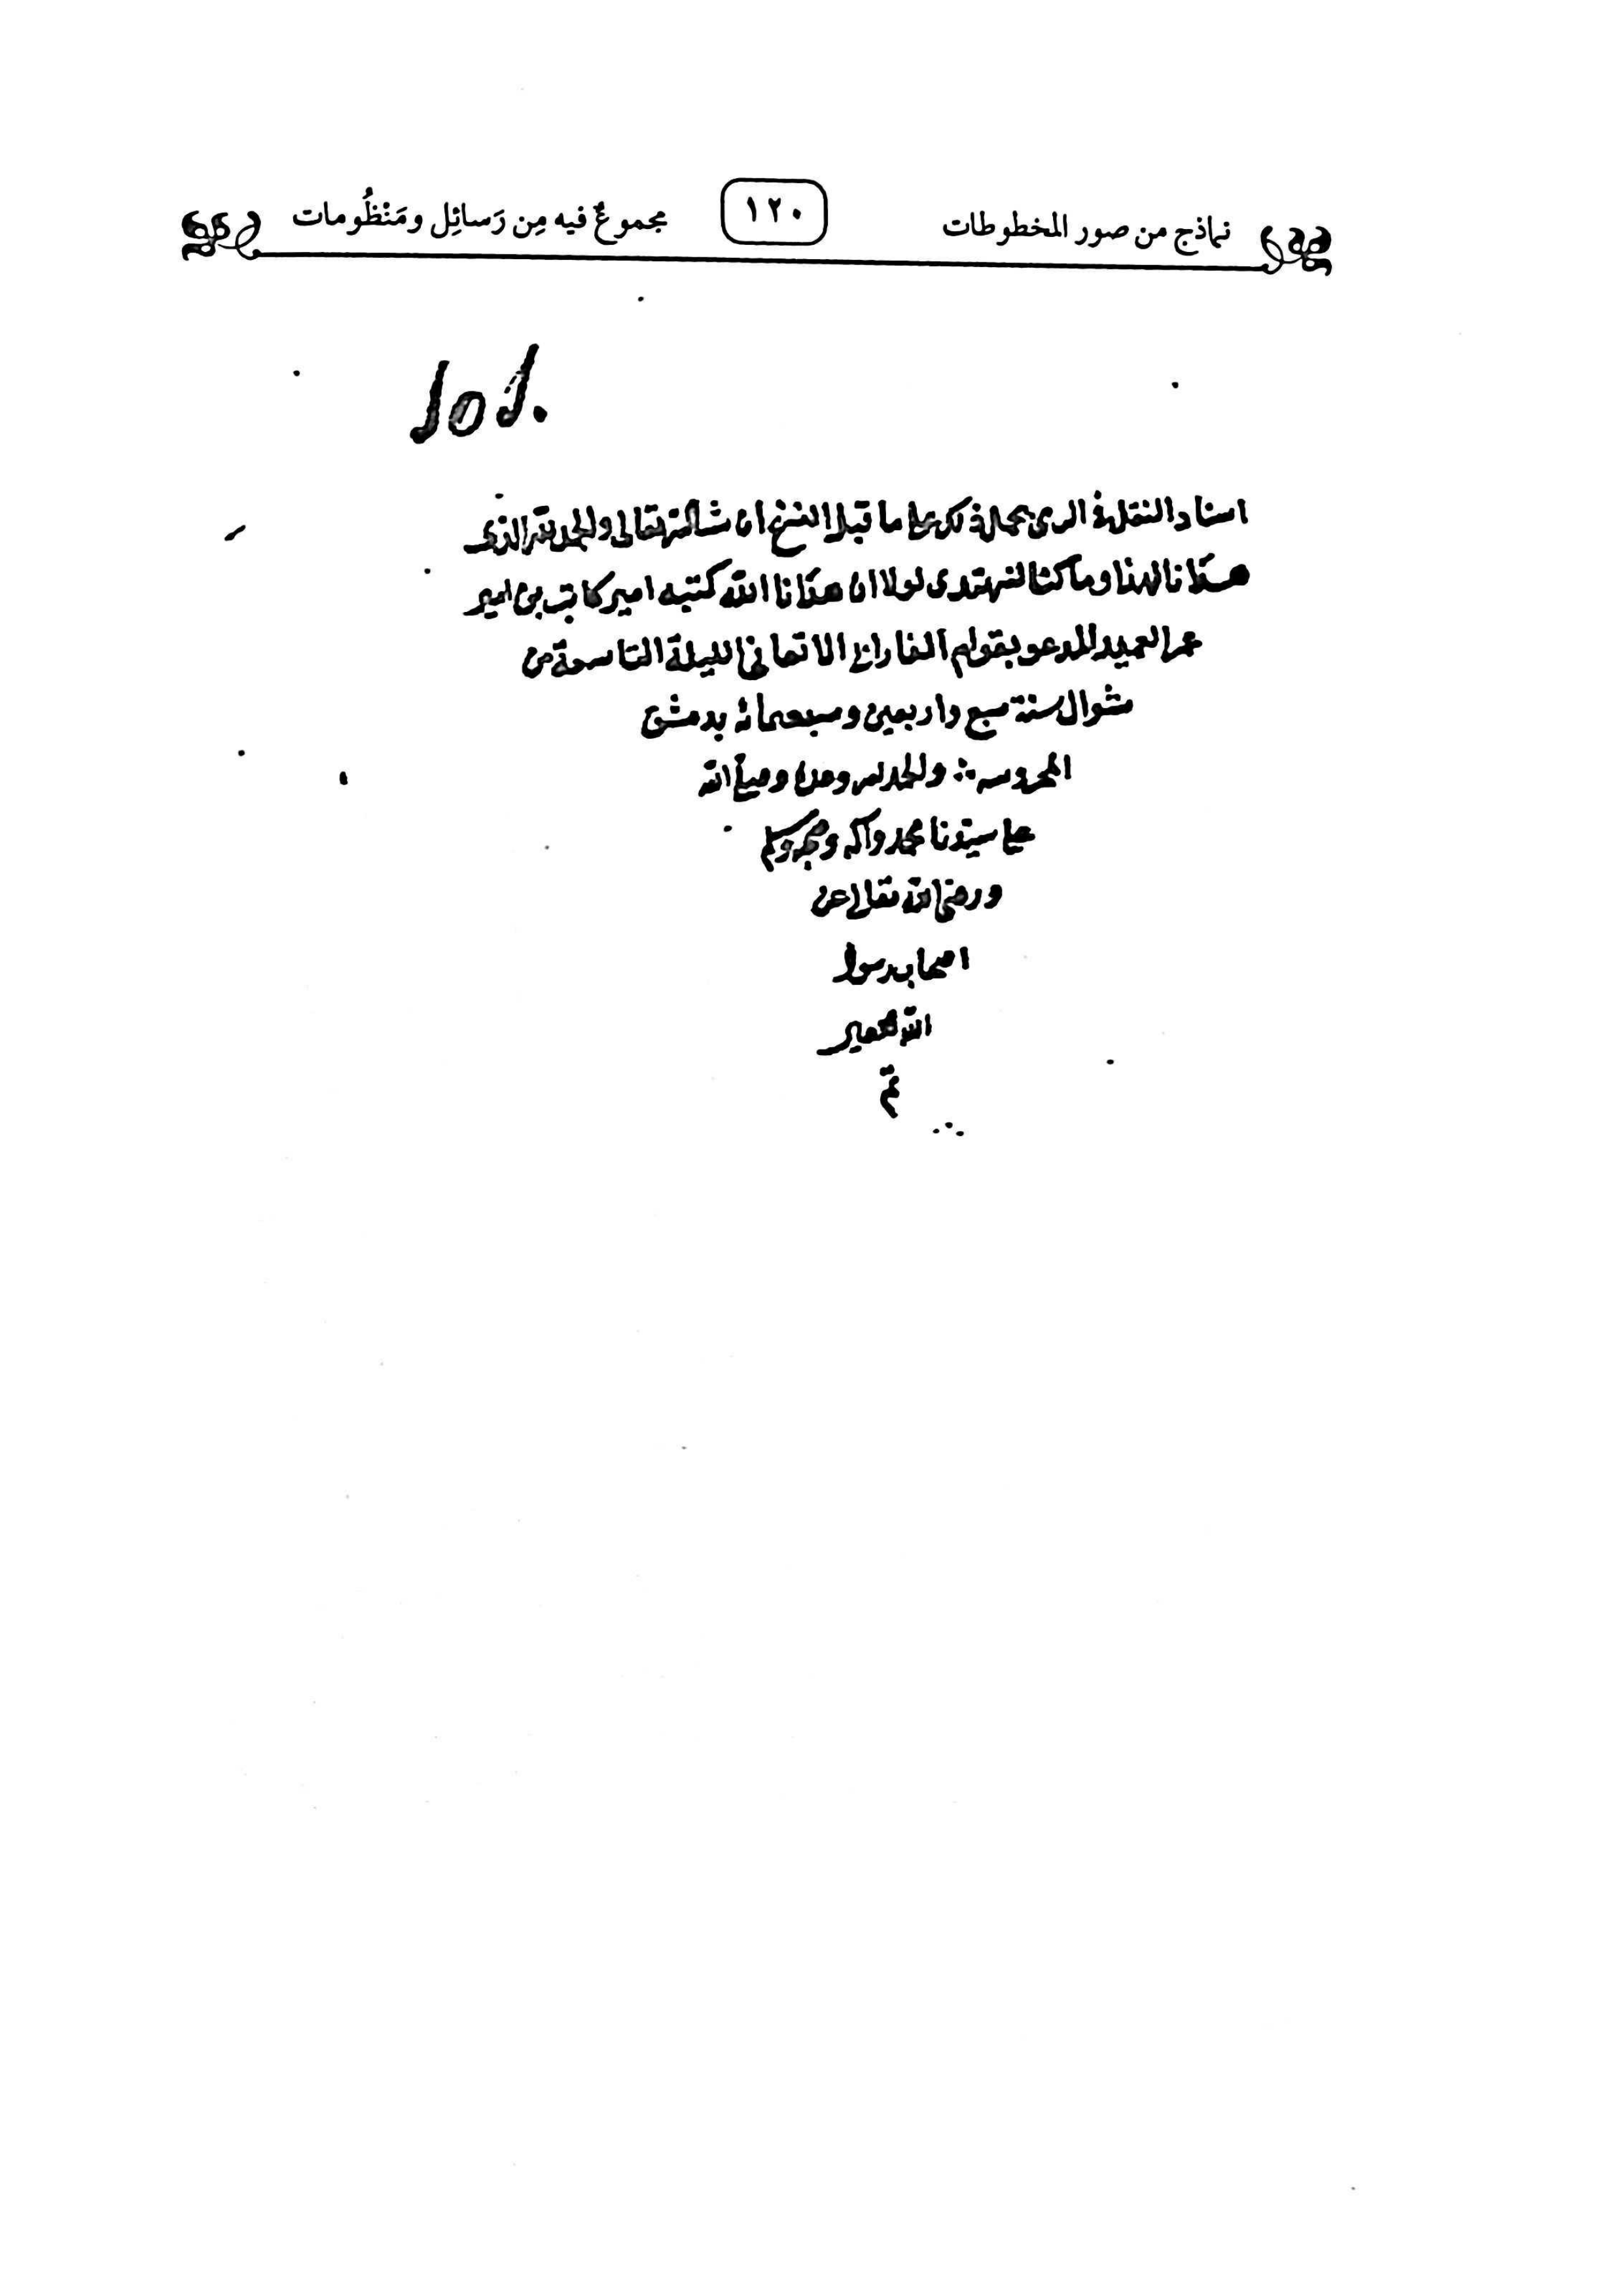 نماذج من صور المخطوطات ١٢٠ مجموعٌ فيه مِن رَسائِل ومَنْظُومات
اسناد النقلة الذى بحملة ما قبل النسخ ان شا الله تعالى والحمد لله الذى
هدانا لهذا وما كنا لنهتدى لولا ان هدانا الله كتبه امير كاتب بن امير
عمر العميد المدعو بقوام الفارابى الاتقانى الليلة التاسعة من
شوال سنة سبع واربعين وسبعمائة بدمشق
المحروسه والحمد لله وحده وصلى الله
على سيدنا محمد وآله وصحبه وسلم
ورضى الله تعالى عن
اصحاب رسول
الله اجمعين
تم